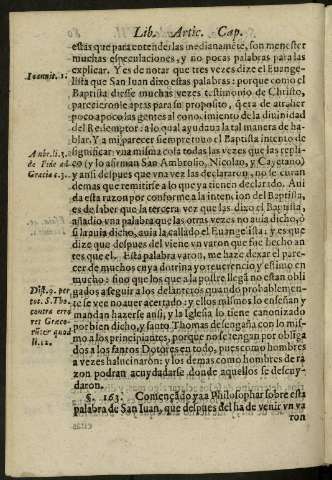 Lib. Artic. Cap.
estas que para entenderlas medianamẽte, son menester
muchas especulaciones, y no pocas palabras para las
explicar. Y es de notar que tres vezes dize el Euange-
lista que San Iuan dixo estas palabras: porque como el
Baptista diesse muchas vezes testimonio de Christo,
parecieronle aptas para su proposito, q̃ era de atraher
poco a poco las gentes al conocimiento de la diuinidad
del Redemptor: a lo qual ayudaua la tal manera de ha-
blar. Y a mi parecer siempre tuuo el Baptista intento de
significar vna misma cosa todas las vezes que las repli-
co (y lo afirman San Ambrosio, Nicolao, y Cayetano)
y ansi despues que vna vez las declararon, no se curan
demas que remitirse a lo que ya tienen declarado. Aui
da esta razon por conforme a la intencion del Baptista,
es de saber que la tercera vez que las dixo el Baptista,
añadio vna palabra que las otras vezes no auia dicho, ó
si la auia dicho, auia la callado el Euangelista; y es que
dize que despues del viene vn varon que fue hecho an
tes que el. Esta palabra varon, me haze dexar el pare-
cer de muchos cuya dotrina yo reuerencio y estimo en
mucho: sino que los que a la postre llegã no estan obli
gados a seguir a los delanteros quando probablemen-
te se vee no auer acertado: y ellos mismos lo enseñan y
mandan hazerse ansi, y la Iglesia lo tiene canonizado
por bien dicho, y santo Thomas desengaña con lo mis-
mo a los principiantes, porque no se tengan por obliga
dos a los santos Dotores en todo, pues como hombres
a vezes halucinaron: y los demas como hombres de ra
zon podran acuydadarse donde aquellos se descuy-
daron.
§. 163. Començado ya a Philosophar sobre esta
palabra de San Iuan, que despues del ha de venir vn va
ron
Ioannis. 1.
Ambr. li. 3.
de Fide ad
Gracia c. 3.
Diss. 9. per
tot. S. Tho.
contra erro
res Græco-
rũ: et quod
li. 12.